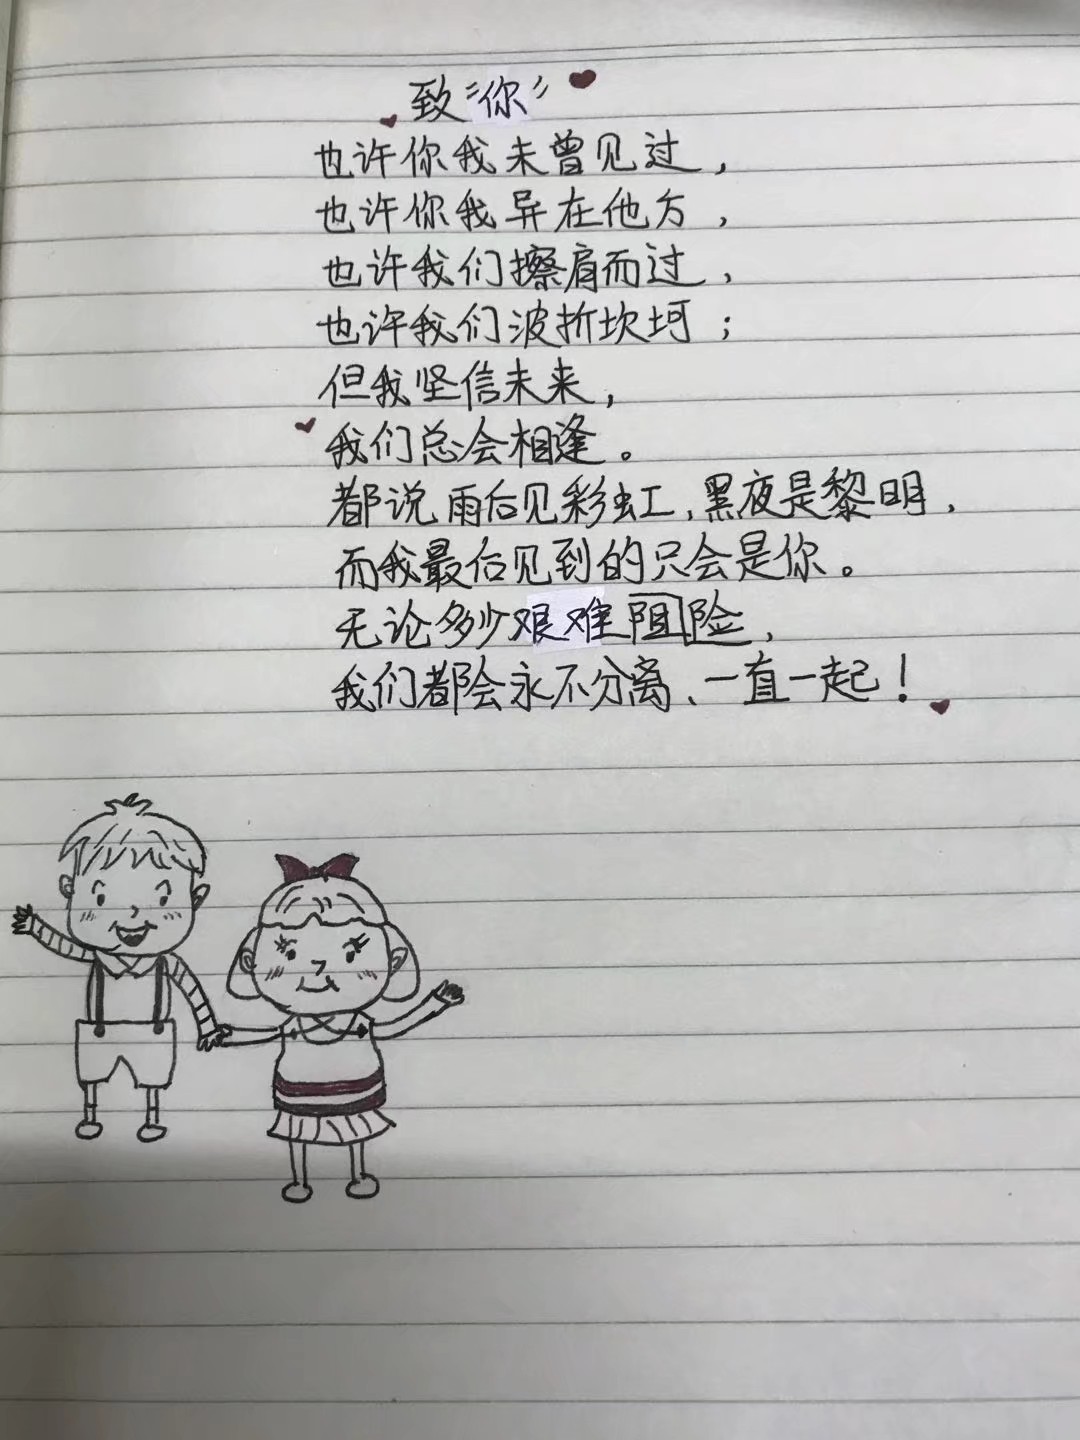 致"你"
也许你我未曾见过，
也许你我异在他方，
也许我们擦肩而过，
也许我们波折坎坷；
但我坚信未来，
我们总会相逢。
都说雨后见彩虹，黑夜是黎明，
而我最后见到的只会是你。
无论多少艰难阻险，
我们都会永不分离、一直一起！